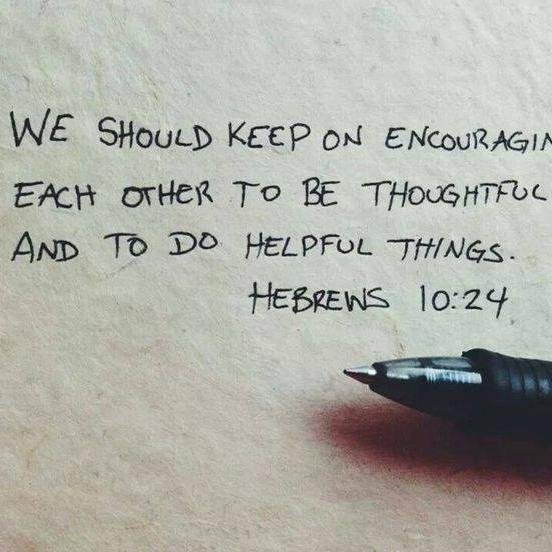 WE SHOULD KEEP ON ENCOURAGIN
EACH OTHER TO BE THOUGHTFUL
AND TO DO HELPFUL THINGS.
HEBREWS 10:24